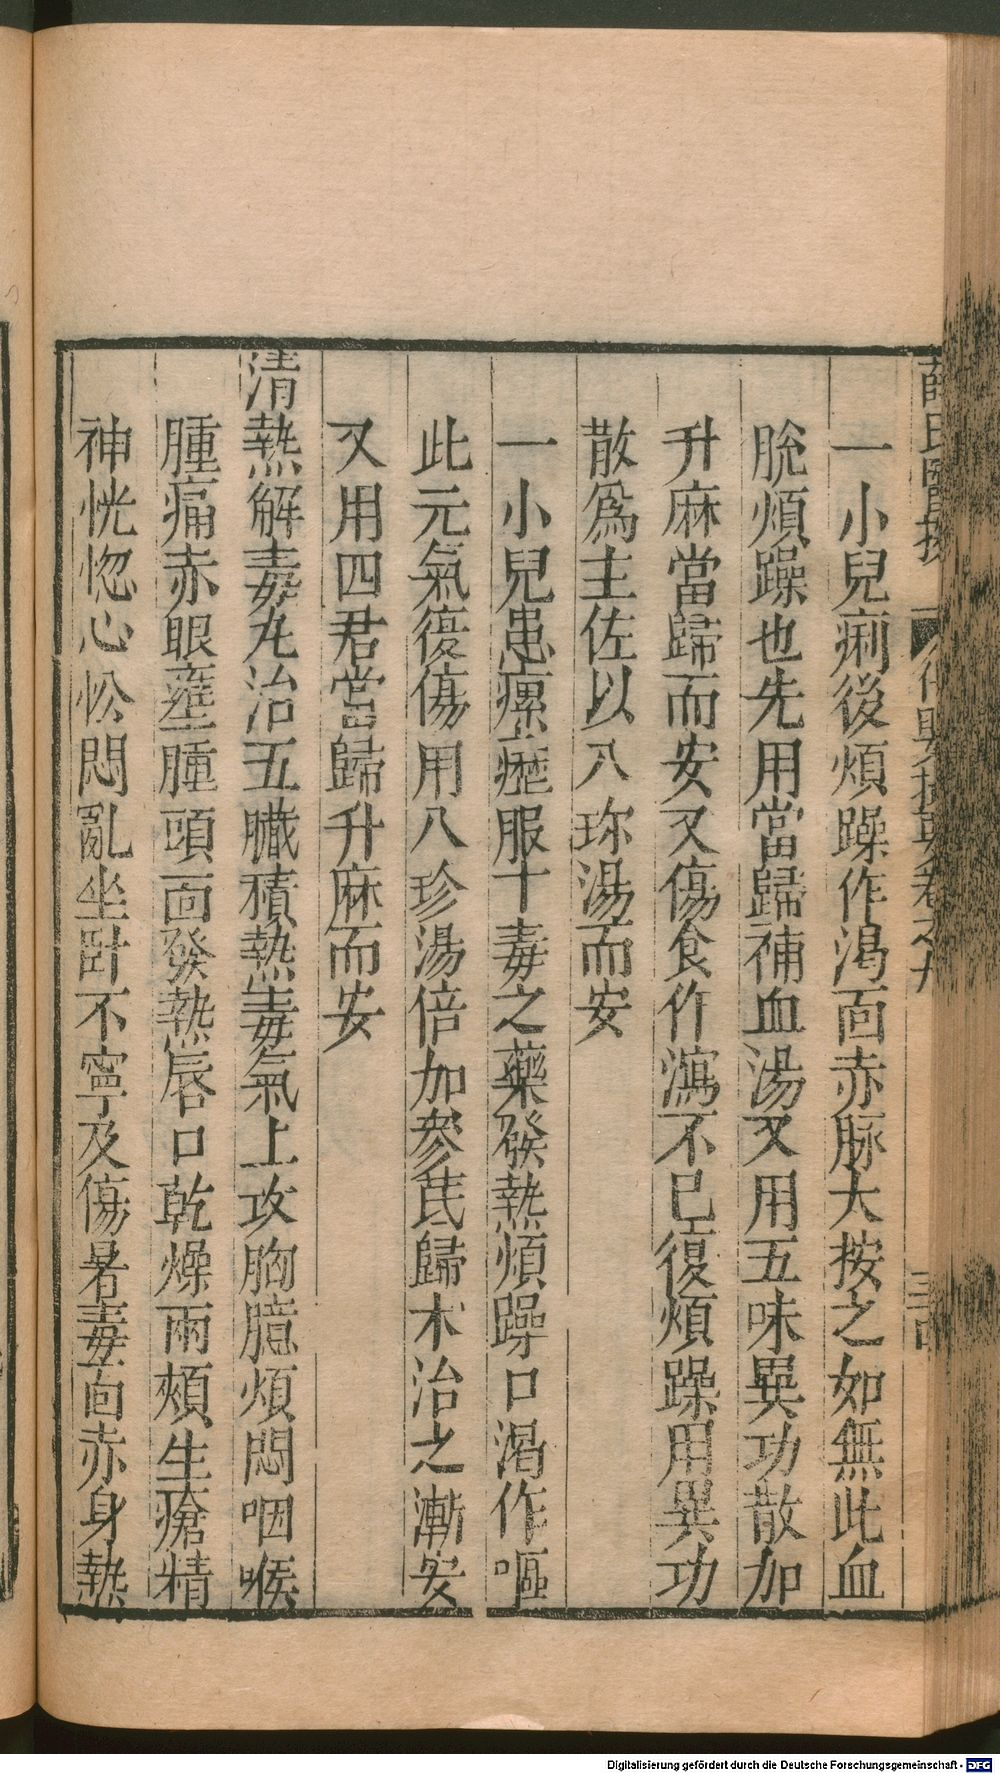 薛氏醫按
保嬰撮要卷之九
三十四
一小兒痢後煩躁作渴面赤脉大按之如無此血
脫煩躁也先用當歸補血湯又用五味異功散加
升麻當歸而安又傷食作瀉不已復煩躁用異功
散爲主佐以八珎湯而安
一小兒患瘰癧服十毒之藥發熱煩躁口渴作嘔
此元氣復傷用八珍湯倍加參芪歸术治之漸安
又用四君當歸升麻而安
清熱解毒丸治五臟積熱毒氣上攻胸臆煩悶咽喉
腫痛赤眼壅腫頭面發熱唇口乾燥兩頰生瘡精
神恍惚心忪悶亂坐卧不寧及傷暑毒面赤身熱
Digitalisierung gefördert durch die Deutsche Forschungsgemeinschaft - DFG